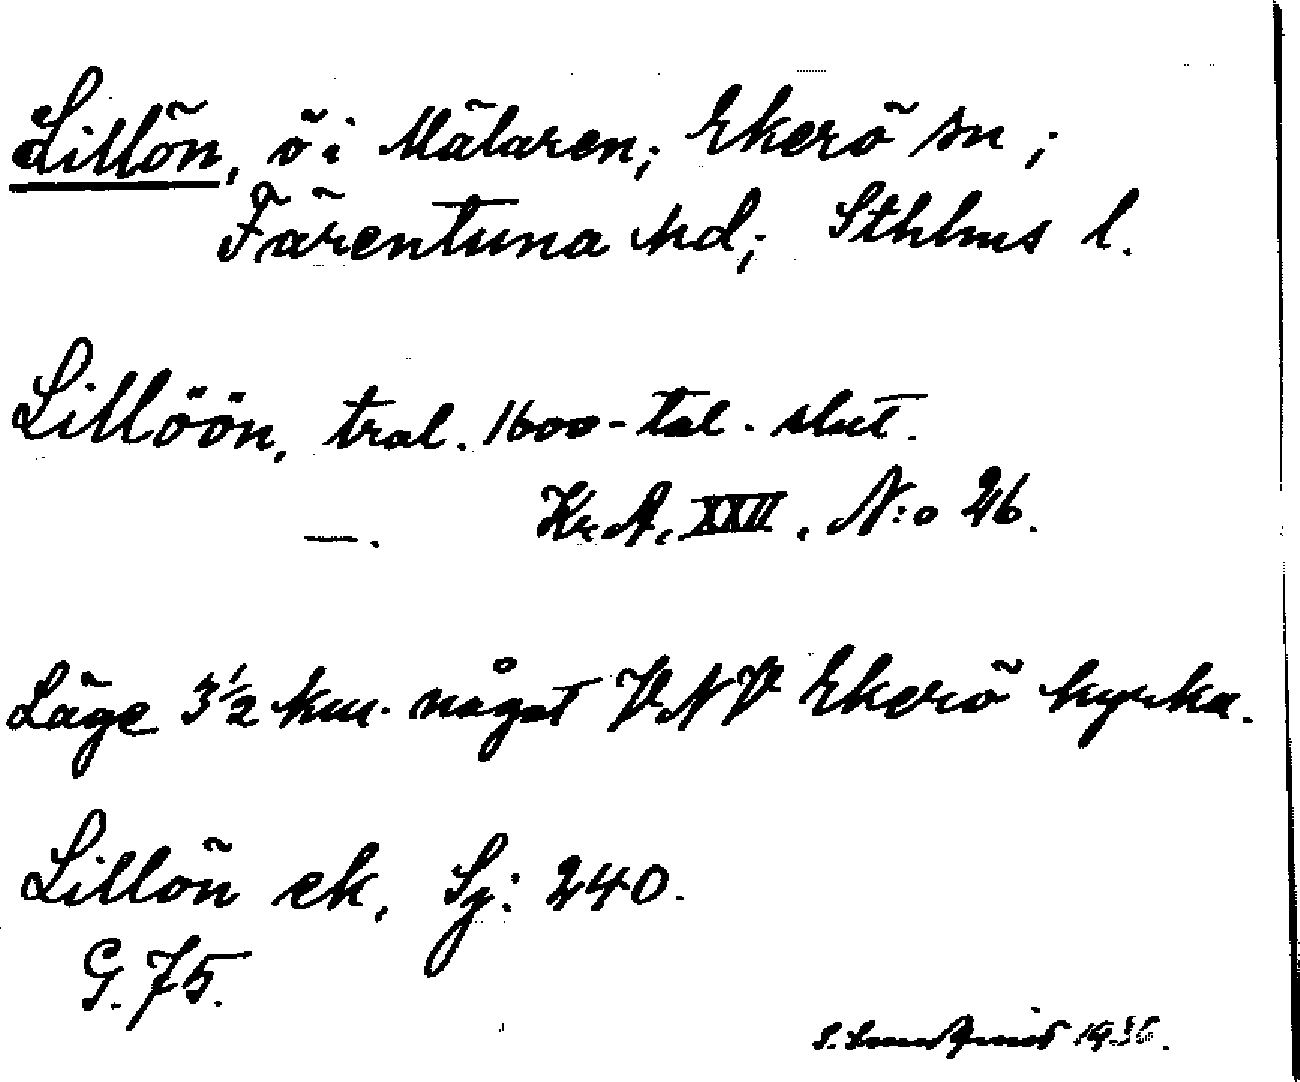 Lillön, ö i Mälaren; Ekerö sn;
Färentuna hd; Sthlms l.
Lillöön, tral. 1600-tal. slut.
—. Kr. A. XXII. N:o 26.
Läge 3½ km. något VNV Ekerö kyrka.
Lillön ek, Sj: 240.
G. 75.
S. 1936.